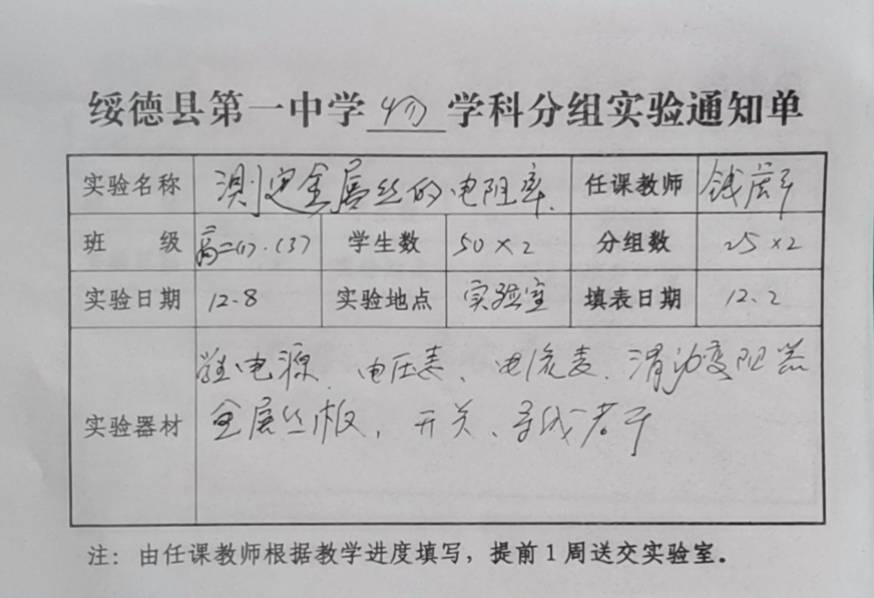 绥德县第一中学 物 学科分组实验通知单
实验名称 测定金属丝的电阻率. 任课教师
班 级 高二(1)·(3) 学生数 50×2 分组数 25×2
实验日期 12.8 实验地点 实验室 填表日期 12.2
电源、电压表、电流表、滑动变阻器
实验器材 金属丝板,开关、导线若干
注:由任课教师根据教学进度填写,提前1周送交实验室。